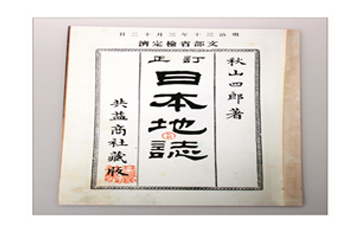 明治三十年三月十三日
文部省檢定濟
秋山四郎著
訂正
日本地誌
共益商社藏版